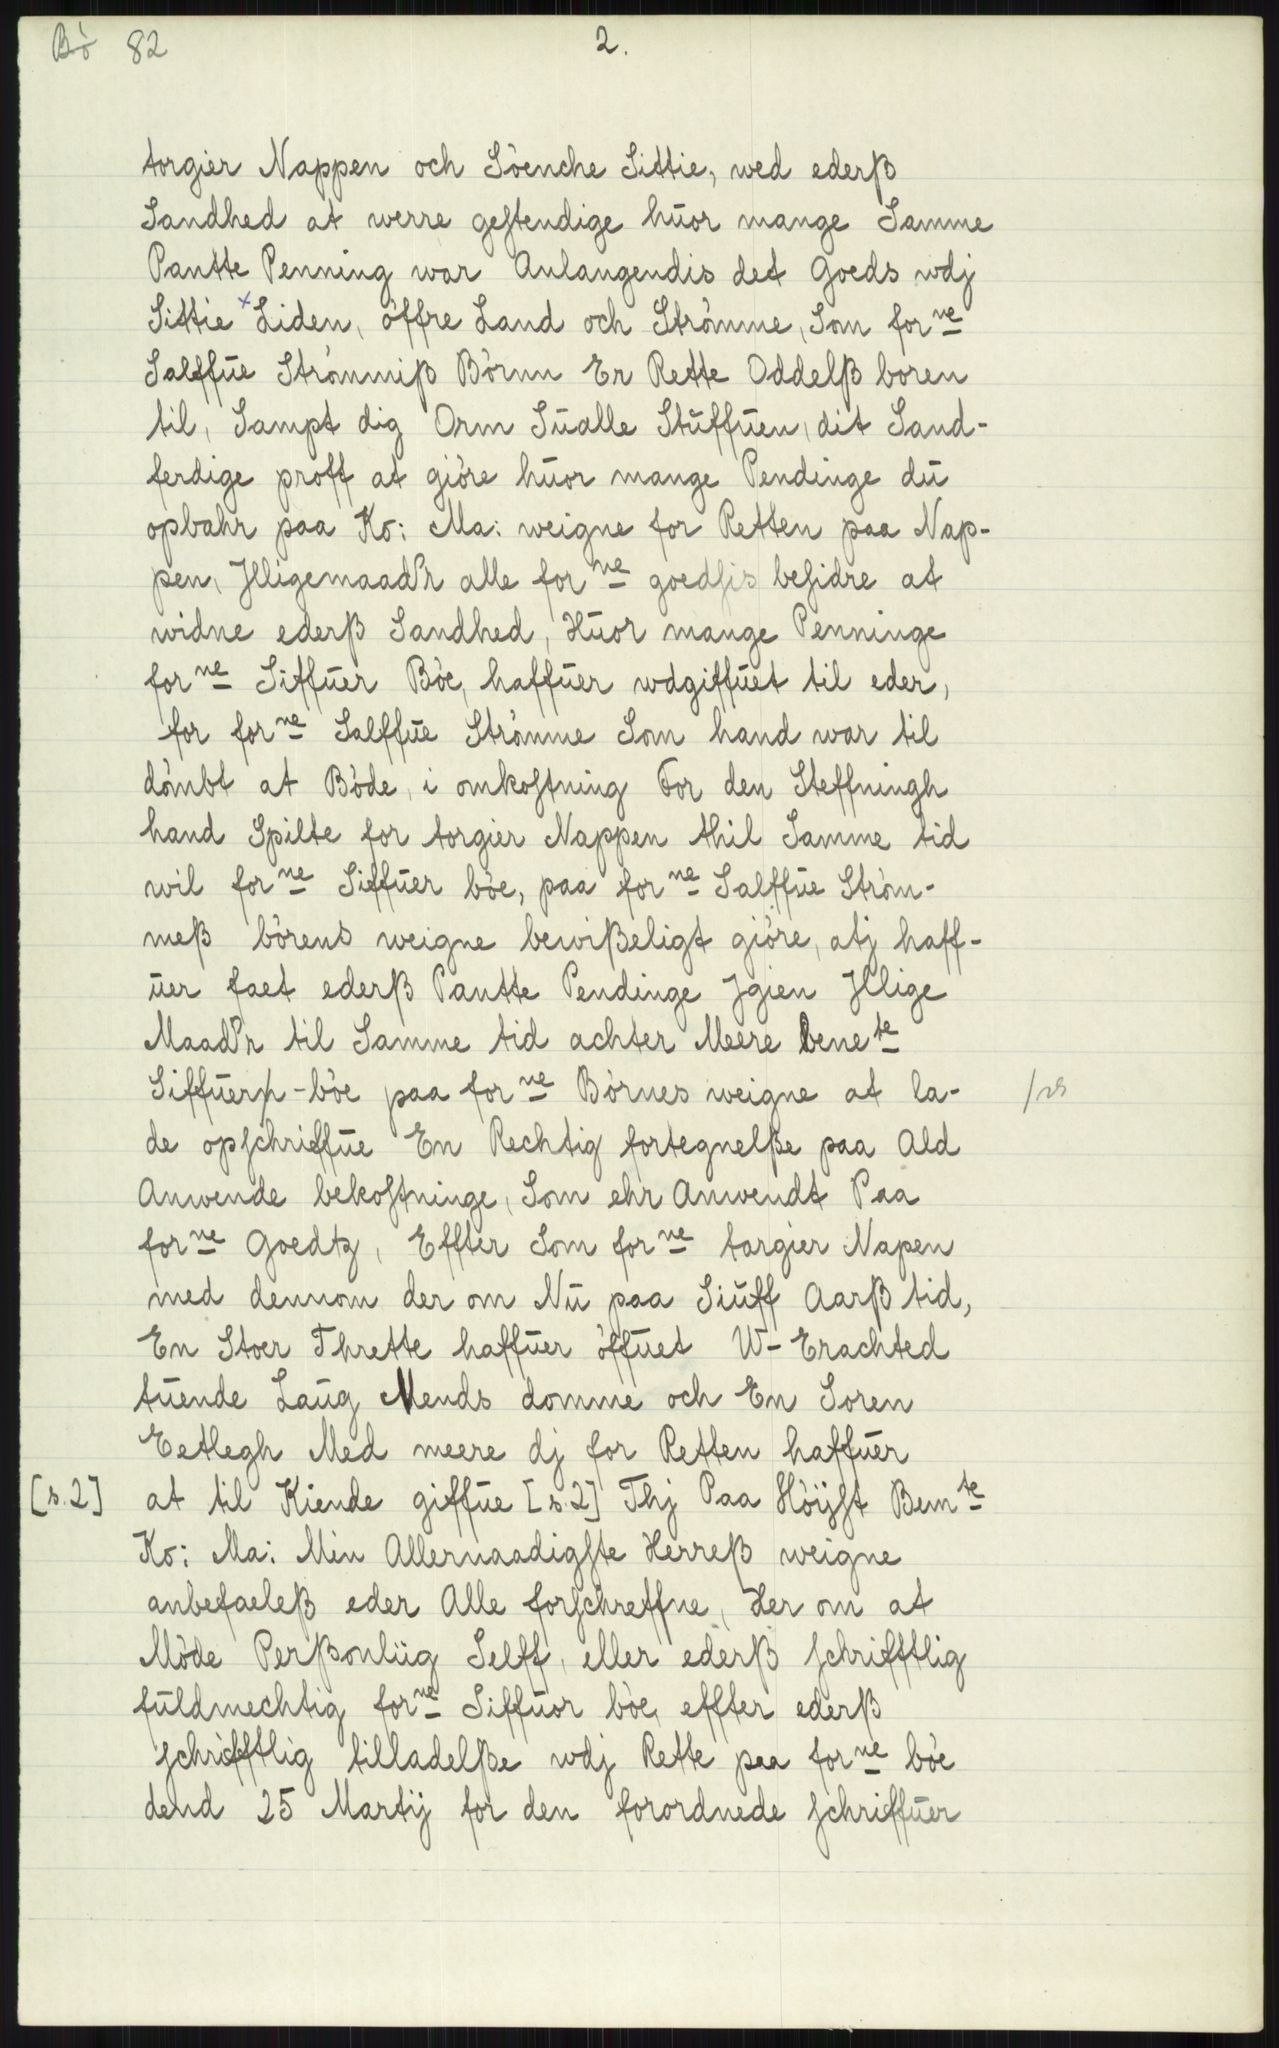 Bò 82 2.
torgier Nappen och Sòenche Sittie, wed ederß
Sandhed at werre gestendige huor mange Samme
Pantte Penning war Anlangendis det Goeds wdj
Sittie x Liden, òffre Land och Stròmme, Som for ne
Salffue Stròmmiß Bòrnn Er Rette Oddelß boren
til, Sampt dig Orm Sualle Stuffuen, dit Sand-
ferdige proff at giòre huor mange Pendinge du
opbahr paa Ko: Ma: weigne for Retten paa Nap-
pen, Jlligemaad'r alle for ne goedsis besidre at
widne ederß Sandhed, Huor mange Penninge
for ne Siffuer Bòe, haffuer wdgiffuet til eder,
for for ne Salffue Stròmme Som hand war til
dòmbt at Bòde, i omkostning For den Steffningh
hand Spilte for torgier Nappen thil Samme tid
wil for ne Siffuer bòe, paa for ne Salffue Stròm-
meß bòrens weigne bewißeligt giòre, atj haff-
uer faet ederß Pantte Pendinge Jgien Jllige
Maad'r til Samme tid achter Meere bene te
Siffuerß-bòe paa for ne Bòrnes weigne at la-
de opschriffue En Rechtig fortegnelße paa Ald
Anwende bekostninge, Som ehr Anwendt Paa
for ne Goedtz, Effter Som for ne targier Napen
med dennom der om Nu paa Siuff Aarß tid,
En Stoer Thrette haffuer òffuet W-Erachted
tuende Laug Mends domme och En Soren
Eetlegh Med meere dj for Retten haffuer
[s.2] at til Kiende giffue [s.2] Thj Paa Hòijst Bem te
Ko: Ma: Min Allernaadigste Herreß weigne
anbefaeleß eder Alle forschreffne, Her om at
Mòde Perßonliig Selff, eller ederß schrifftlig
fuldmechtig for ne Siffuor bòe, effter ederß
schrifftlig tilladelße wdj Rette paa for ne bòe
dend 25 Martij for den forordnede schriffuer